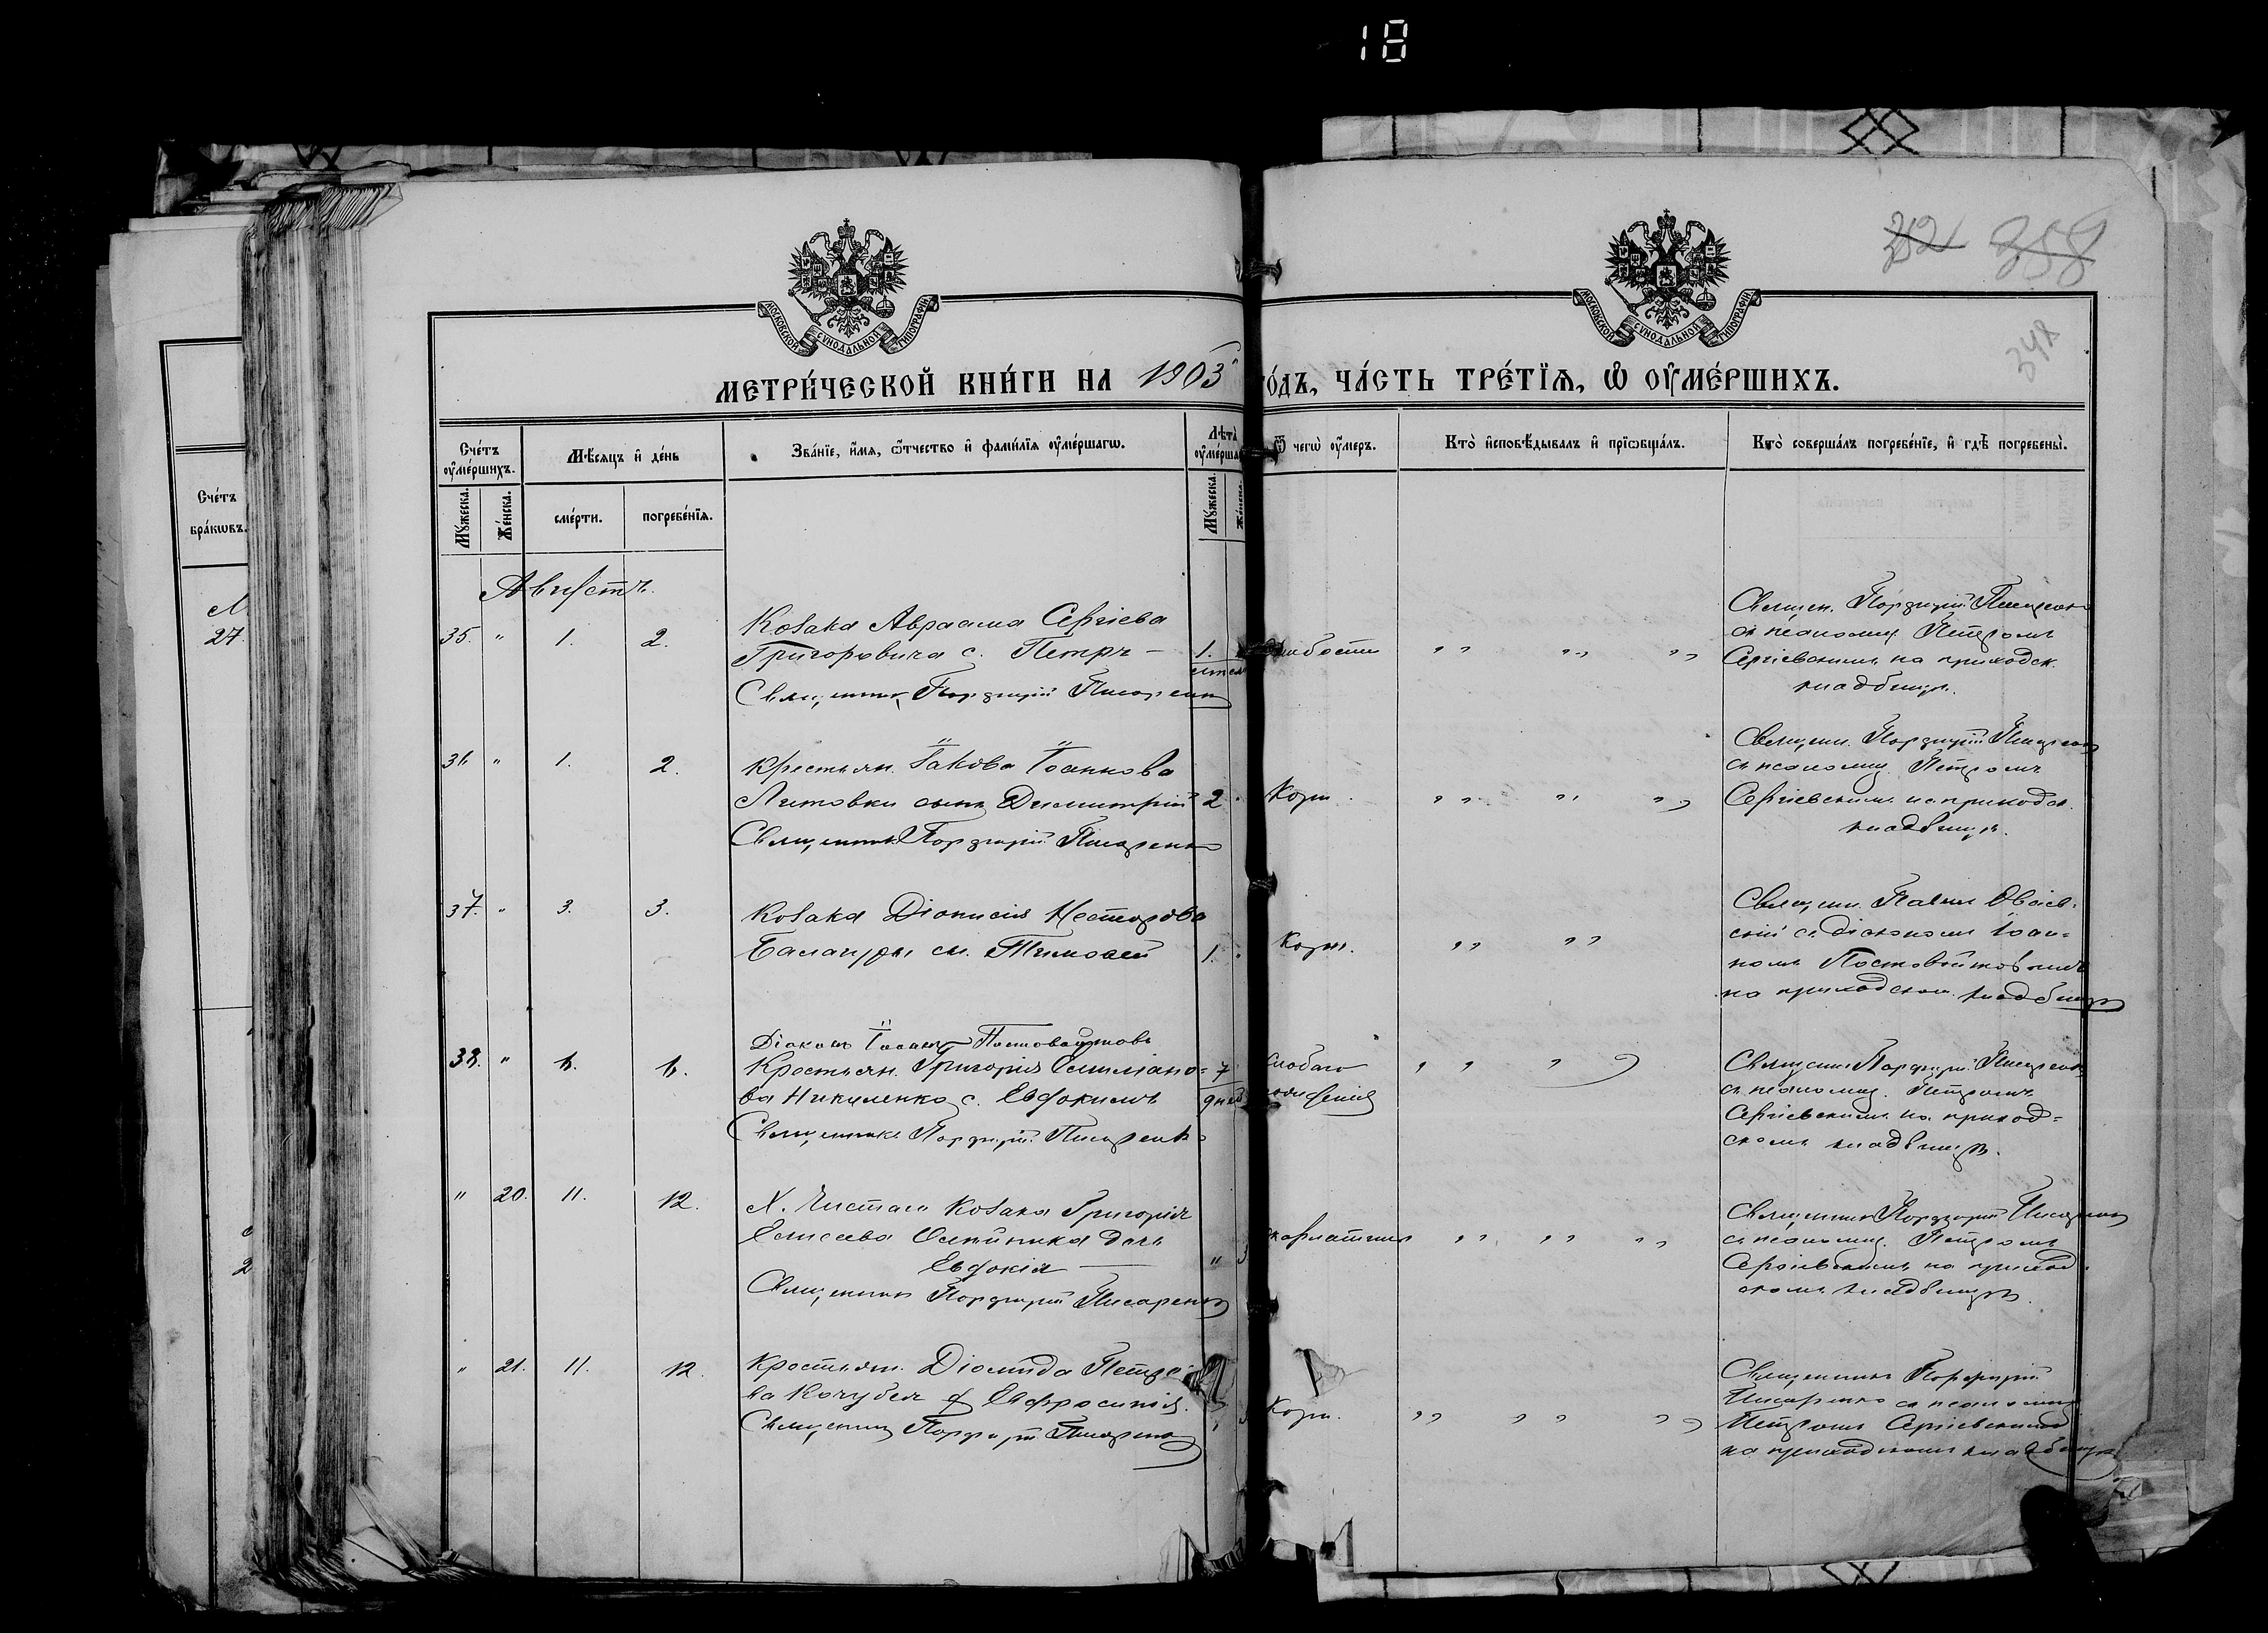 18
352 358
348
МОСКОВСКОЙ СУНОДАЛЬНОЙ ТИПОГРАФІИ
МОСКОВСКОЙ СУНОДАЛЬНОЙ ТИПОГРАФІИ
МЕТРИ́ЧЕСКОЙ КНИ́ГИ НА 1903 го́дъ, ЧА́СТЬ ТРЕ́ТЇѦ, Ѽ ОУМЕ́РШИХЪ.
Сче́тъ бра́кѡвъ.
27.
Сче́тъ оуме́ршихъ.
Мѣ́сѧцъ и де́нь
Зва́нїе, и́мѧ, ѻ́тчество и фами́лїѧ оуме́ршагѡ.
Лѣта̀ оуме́рша
Ѿ чегѡ̀ оу́меръ.
Кто̀ и҆сповѣ́дывалъ и прїѡбща́лъ.
Кто̀ соверша́лъ погребе́нїе, и гдѣ̀ погребены̀.
Мꙋ́жеска.
Же́нска.
сме́рти.
погребе́нїѧ.
Мꙋ́жеска.
Же́нска.
Августъ.
35. " 1. 2.
Козака Авраама Сергіева
Григоровича с. Петръ –
Священникъ Порфирій Писаренко
1.
Священ. Порфирій Писаренко
съ псаломщ. Петромъ
Сергіевскимъ на приходск.
кладбищѣ.
36. " 1. 2.
Крестьян. Іакова Іоаннова
Литовки сынъ Димитрій
Священникъ Порфирій Писаренко
2
Кори.
Священ. Порфирій Писаренко
съ псаломщ. Петромъ
Сергіевскимъ на приходск.
кладбищѣ.
37. " 3. 3.
Козака Діонисія Несторова
Балануры сн. Тимофей
1.
Кори.
Священ. Павелъ
скій съ діакономъ Іоан=
номъ Постовойтовымъ
на приходском. кладбищѣ
Діаконъ Іоаннъ Постовойтовъ
38. " 6. 6.
Крестьян. Григорія Емиліано=
ва Никуленко с. Евфокимъ
Священникъ Порфирій Писаренко
7
дней
слабаго
рожденія
Священникъ Порфирій Писаренко
съ псаломщ. Петромъ
Сергіевскимъ на приход=
скомъ кладбищѣ.
" 20. 11. 12.
Х. Чистаго Козака Григорія
Елисеева Олейника дочь
Евдокія
Священникъ Порфирій Писаренко
" 3
скарлатины
Священникъ Порфирій Писаренко
съ псаломщ. Петромъ
Сергіевскимъ на приход
скомъ кладбищѣ.
" 21. 11. 12.
Крестьян. Діомида Петро
ва Кочубея д Евфросинія.
Священникъ Порфирій Писаренко
Кори.
Священникъ Порфирій
Писаренко съ псаломщ
Петромъ Сергіевскимъ
на приходскомъ кладбищѣ